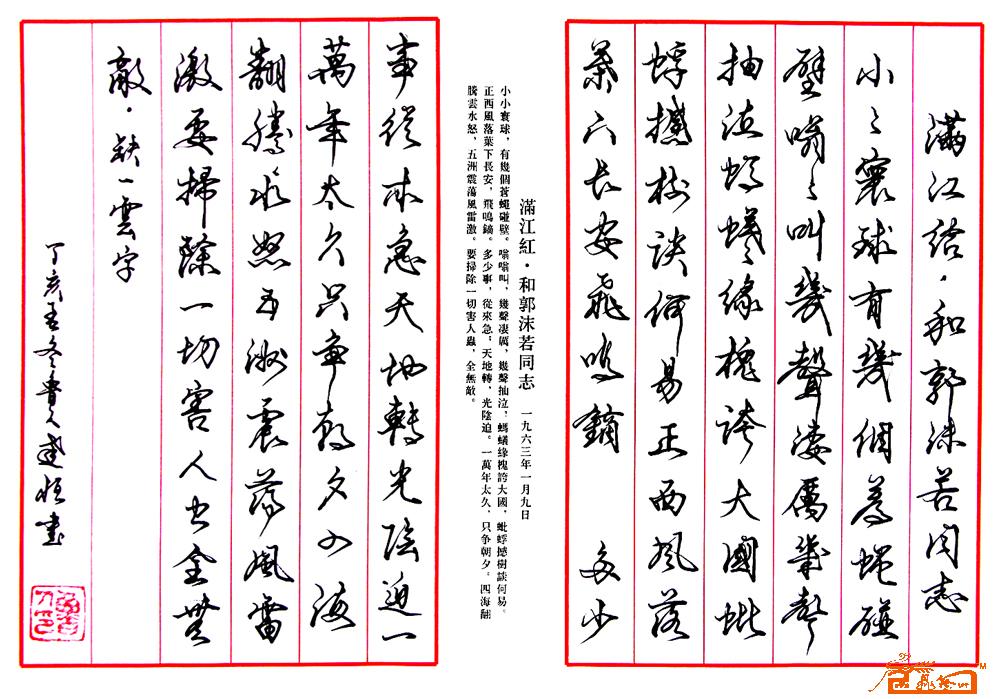 滿江紅·和郭沫若同志
小々寰球有幾個蒼蠅碰
壁嗡々叫幾聲淒厲幾聲
抽泣螞蟻緣槐誇大國蚍
蜉撼樹談何易正西風落
葉下長安飛鳴鏑 多少
滿江紅·和郭沫若同志 一九六三年一月九日
小小寰球，有幾個蒼蠅碰壁。嗡嗡叫，幾聲凄厲，幾聲抽泣；螞蟻緣槐誇大國，蚍蜉撼樹談何易。
正西風落葉下長安，飛鳴鏑。多少事，從來急；天地轉，光陰迫。一萬年太久，只争朝夕。四海翻
騰雲水怒，五洲震蕩風雷激。要掃除一切害人蟲，全無敵。
事從來急天地轉光陰迫一
萬年太久只爭朝夕四海
翻騰水怒五洲震蕩風雷
激要掃除一切害人虫全無
敵·缺一雲字
丁亥年冬
書